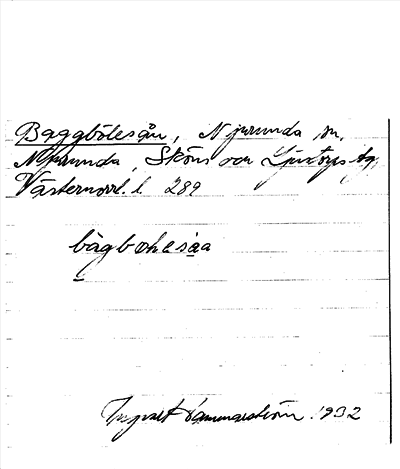 Baggbölesån, Njurunda sn,
Njurunda, Sköns och Ljustorps tg,
Västernorrl. l. 289
bàgbøhlesåa
Ingvart Hammarström. 1932